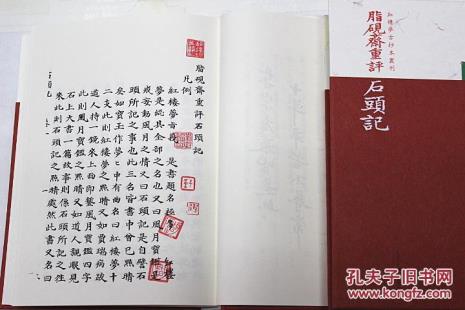 脂硯齋重評石頭記
凡例
紅樓夢旨義 是書題名極多紅樓
夢是總其全部之名也又曰風月寶鑑是
戒妄動風月之情又曰石頭記是自譬石
頭所記之事也此三名皆書中曾已點睛
矣如寶玉作夢夢中有曲名曰紅樓夢十
二支此則紅樓夢之點睛又如賈瑞病跛
道人持一鏡來上面即鏨風月寶鑑四字
此則風月寶鑑之點睛又如道人親眼見
石上大書一篇故事則係石頭所記之往
來此則石頭記之點睛處然此書又名曰
石頭記
紅樓夢古抄本叢刊
脂硯齋重評
石頭記
孔夫子旧书网
www.kongfz.com